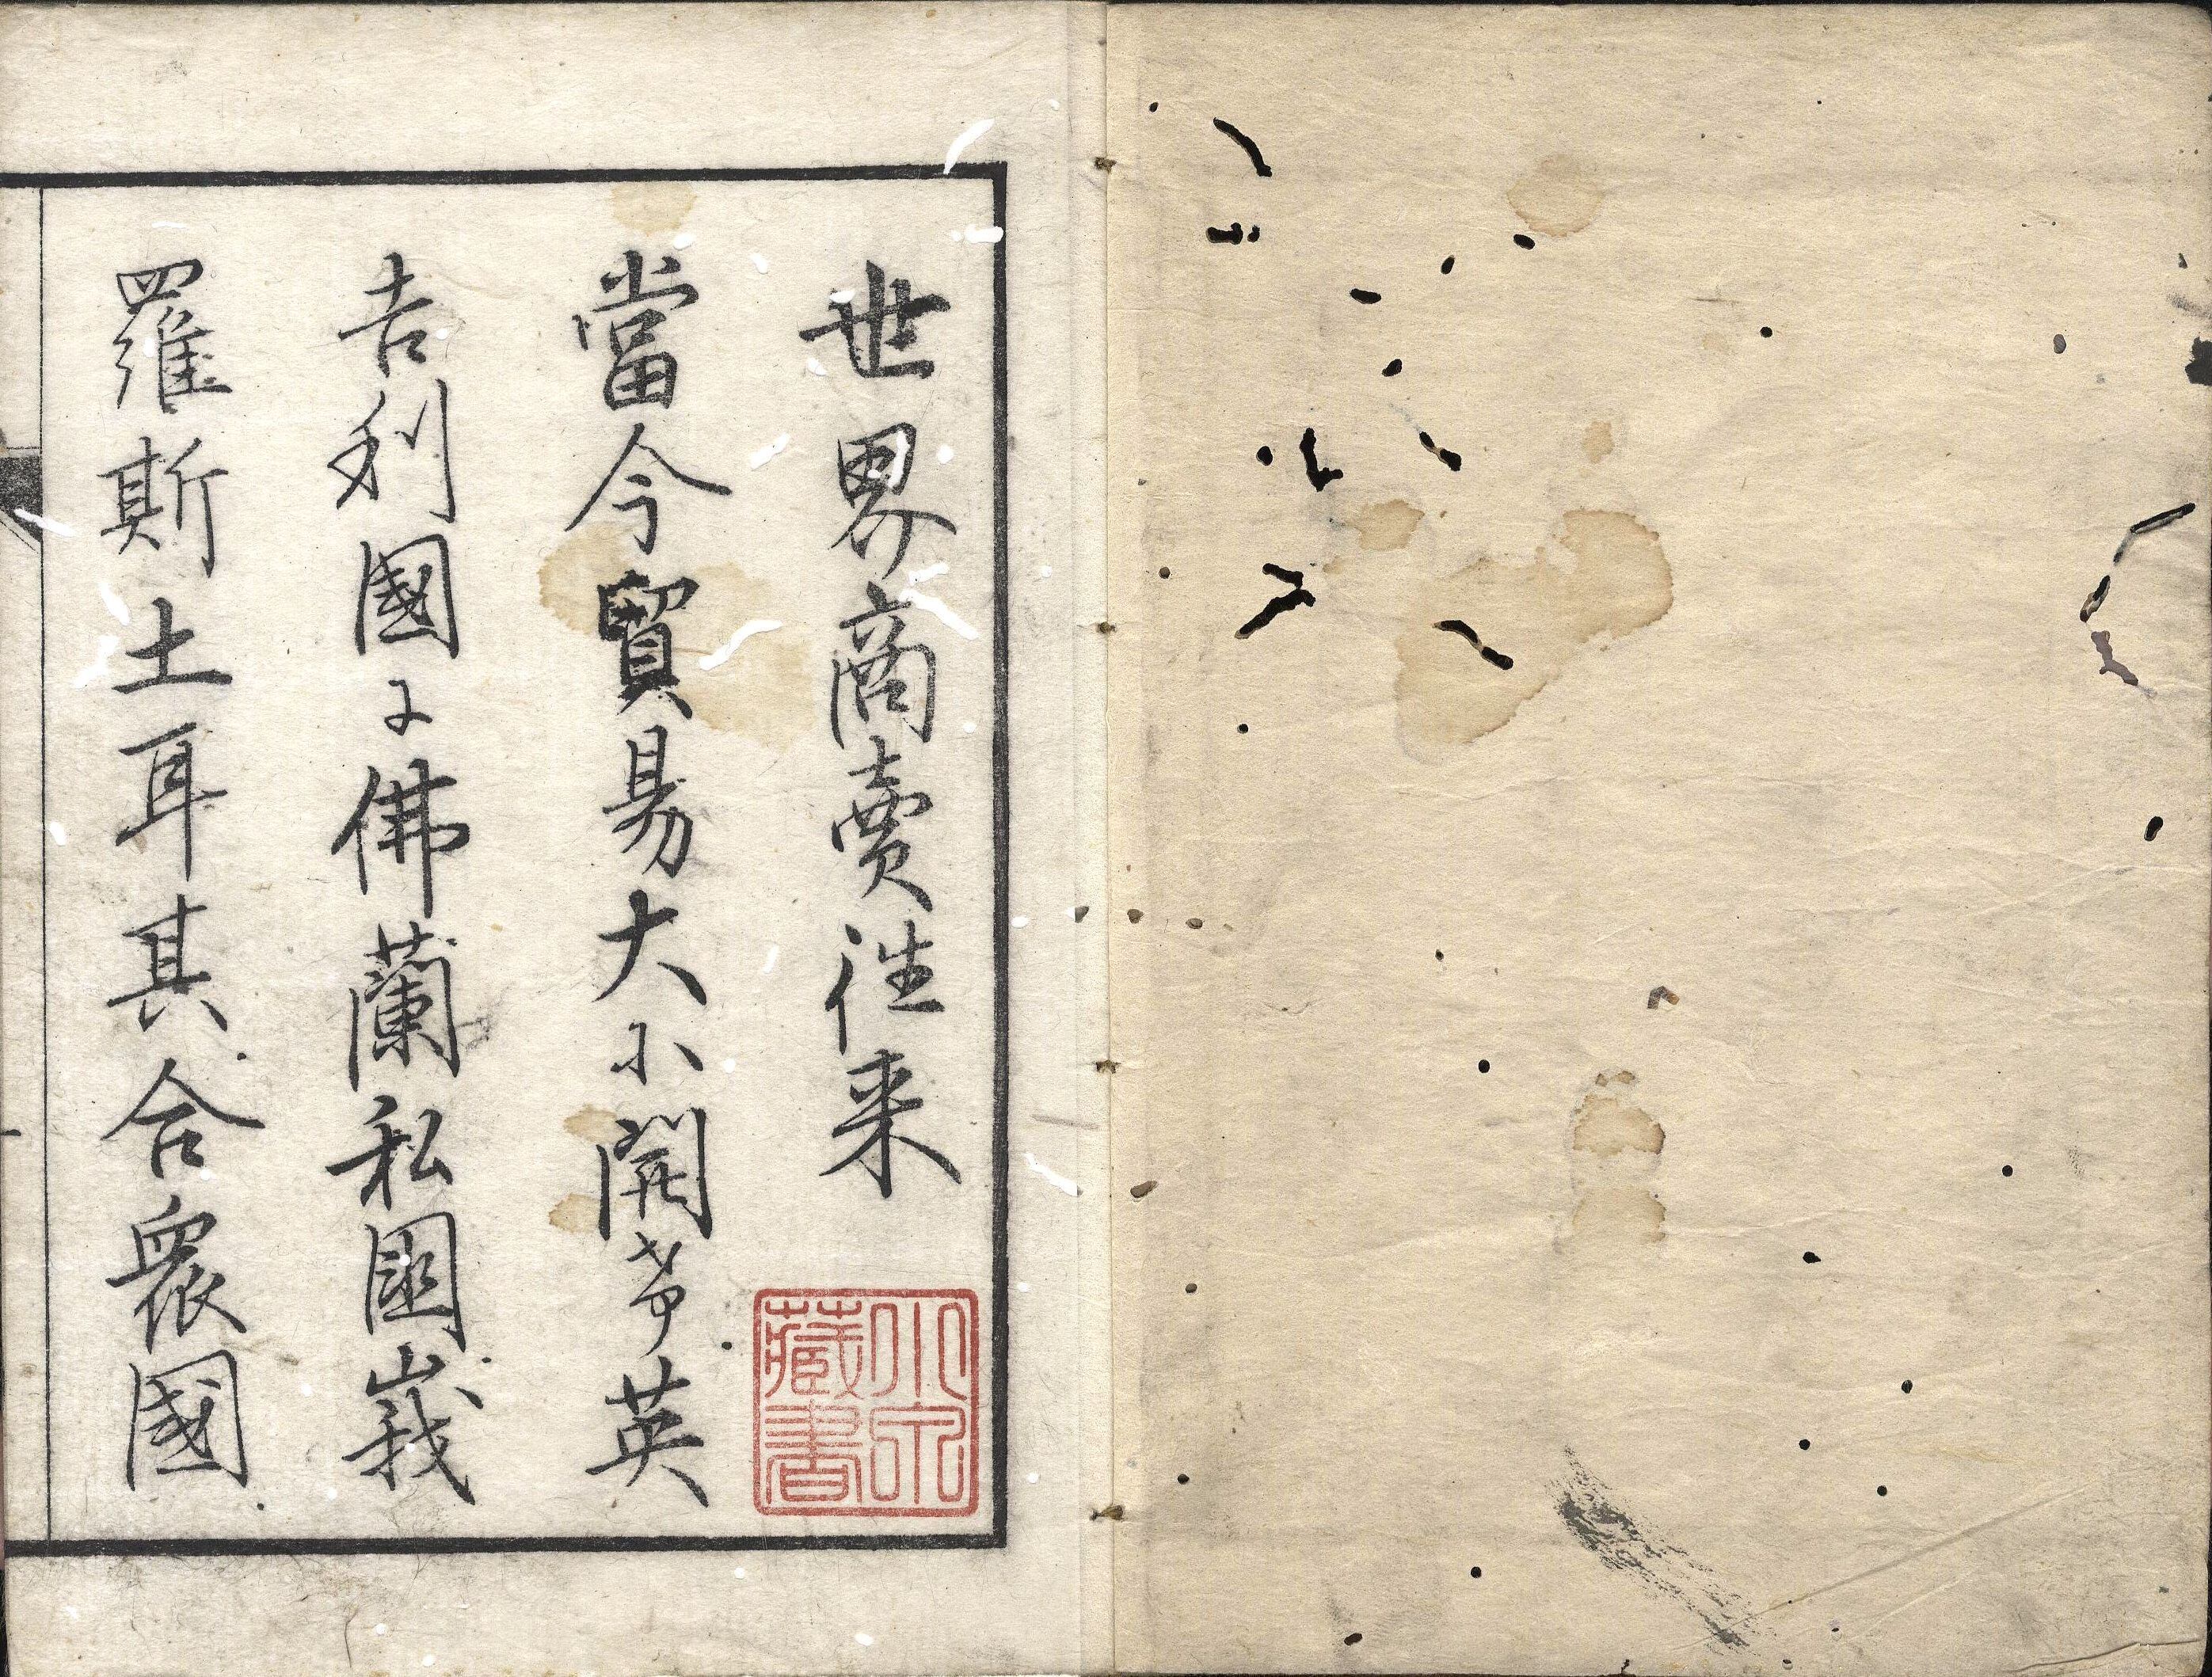 世界商賣往来
當今貿易大小開ケ多ク英
吉利國に佛蘭私國峩
羅斯土耳其合衆國
小泉
藏書